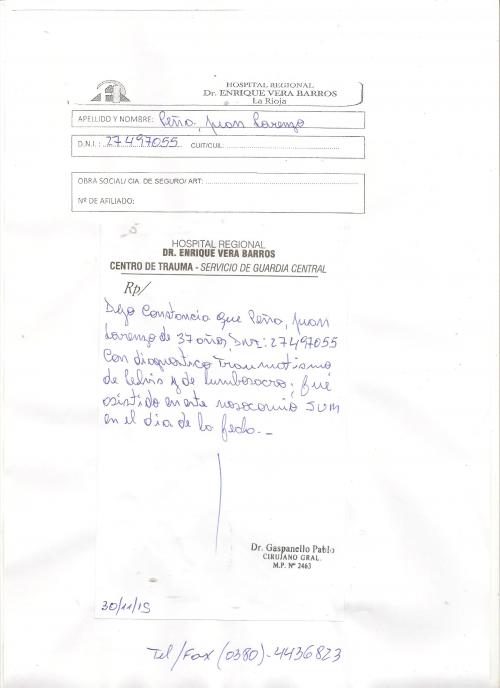 HOSPITAL REGIONAL
Dr. ENRIQUE VERA BARROS
La Rioja
APELLIDO Y NOMBRE: Peña, Juan Lorenzo
D.N.I.: 27497055 CUIT/CUIL:
OBRA SOCIAL/ CIA. DE SEGURO/ ART:
Nº DE AFILIADO:
HOSPITAL REGIONAL
DR. ENRIQUE VERA BARROS
CENTRO DE TRAUMA - SERVICIO DE GUARDIA CENTRAL
Rp/
Dejo Constancia que Peña, Juan
Lorenzo de 37 años, DNI: 27497055
Con diagnostico Traumatismo
de Pelvis y de lumbosacro; fué
asistido en este nosocomio
en el dia de la fecha.-
Dr. Gaspanello Pablo
CIRUJANO GRAL.
M.P. Nº 2463
30/11/15
Tel/Fax (0380)-4436823